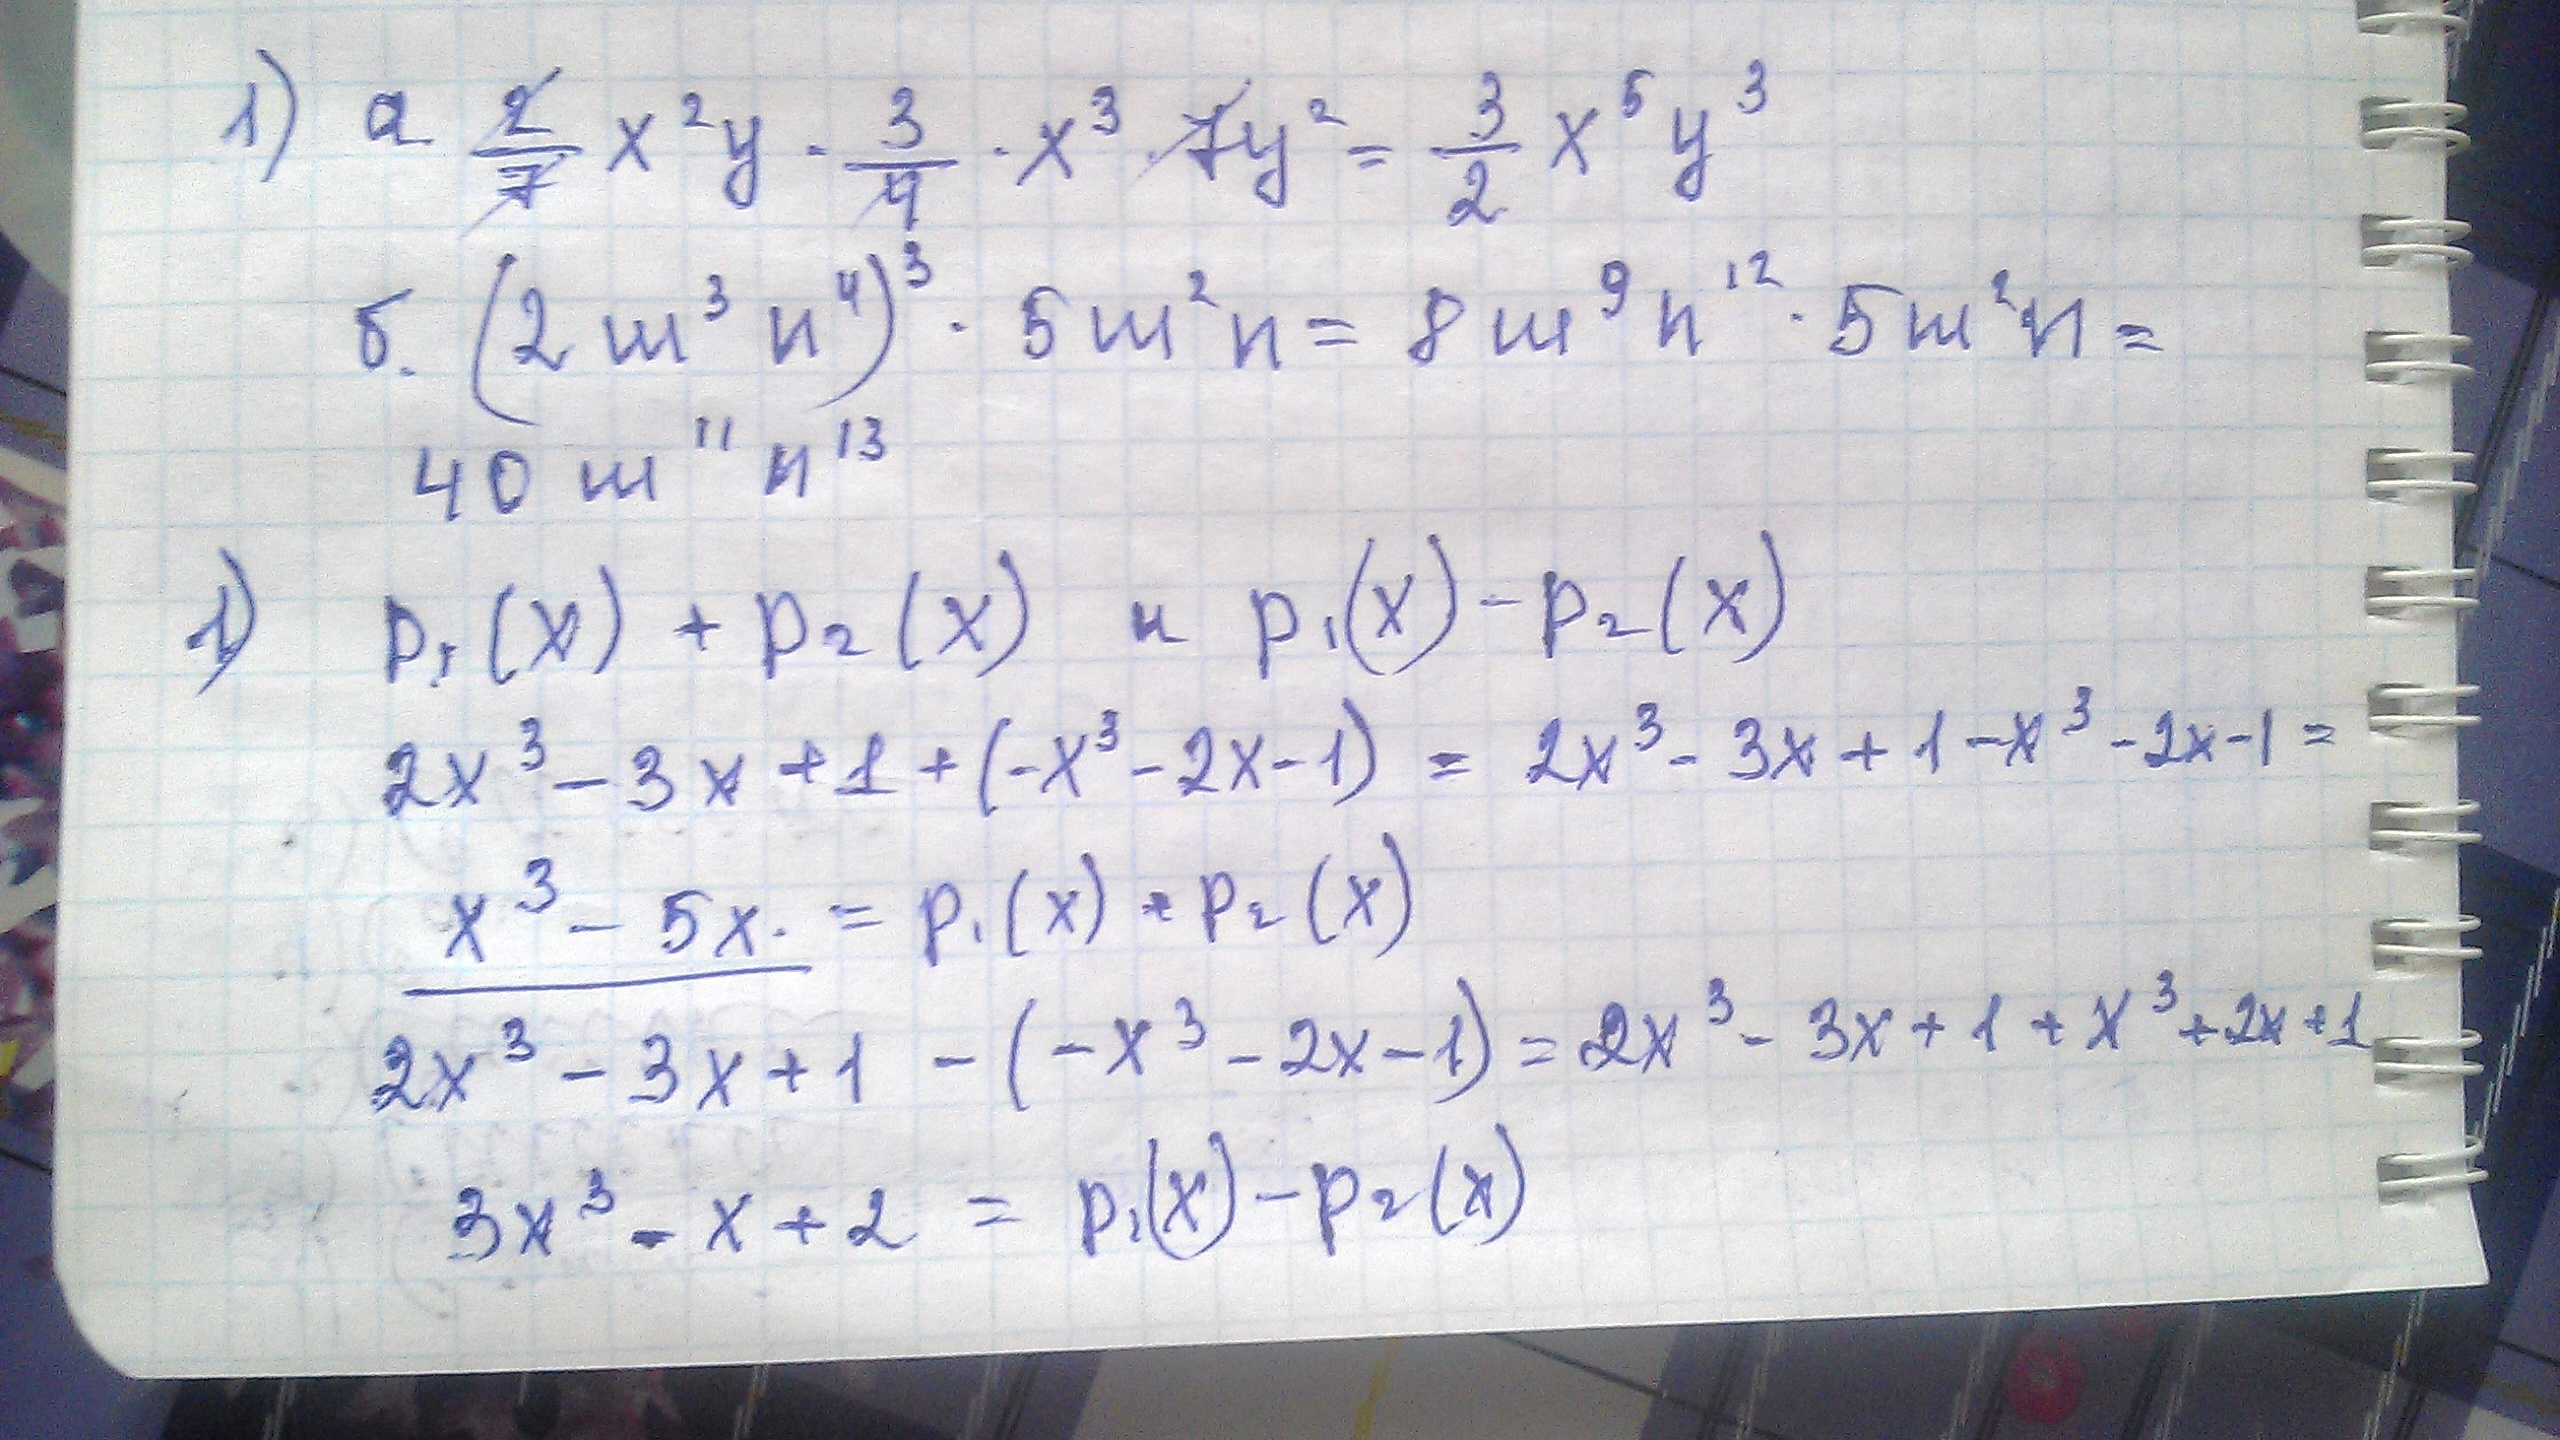 1) а 2/7 x²y · 3/4 · x³ · 7y² = 3/2 x⁵y³
б. (2m³n⁴)³ · 5m²n = 8m⁹n¹² · 5m²n =
40m¹¹n¹³
1) p₁(x) + p₂(x) и p₁(x) - p₂(x)
2x³ - 3x + 1 + (-x³ - 2x - 1) = 2x³ - 3x + 1 - x³ - 2x - 1 =
x³ - 5x. = p₁(x) + p₂(x)
2x³ - 3x + 1 - (-x³ - 2x - 1) = 2x³ - 3x + 1 + x³ + 2x + 1
3x³ - x + 2 = p₁(x) - p₂(x)